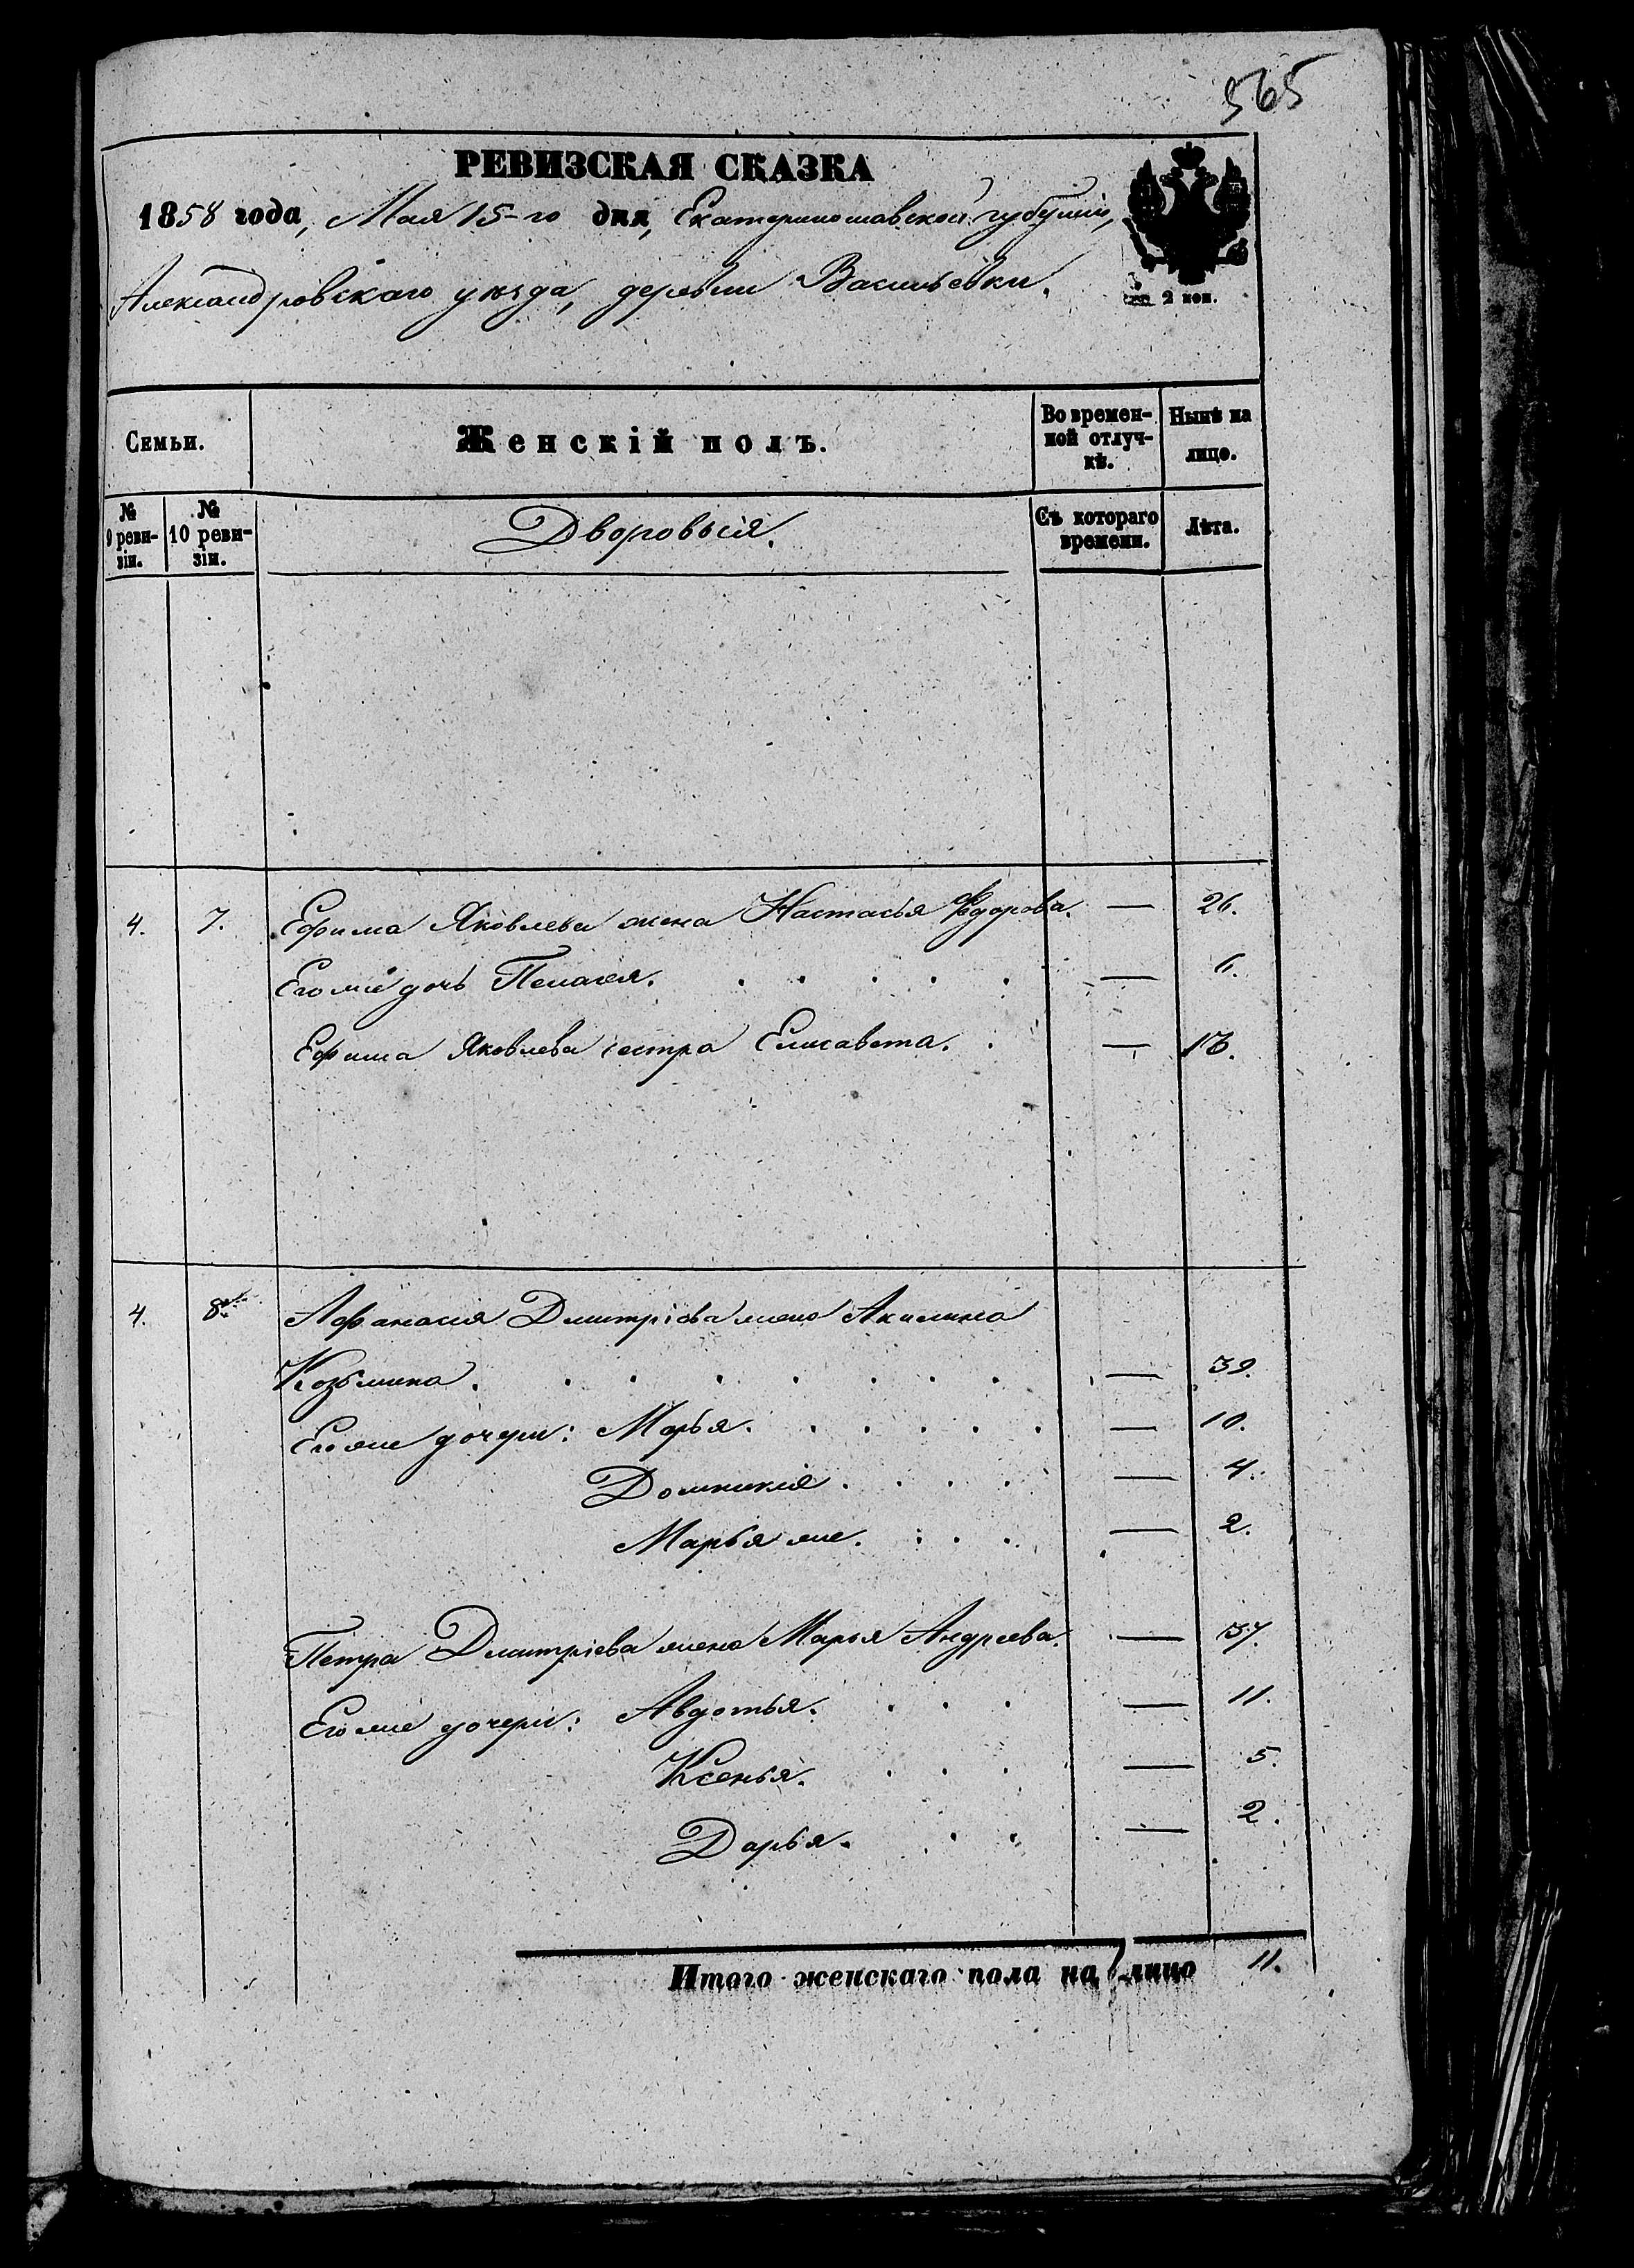 565
РЕВИЗСКАЯ СКАЗКА
1858 года, Мая 15-го дня, Екатеринославской губерніи,
Александровскаго уѣзда, деревни Васильевки.
2 коп.
Семьи.
Женскій полъ.
Во времен-
ной отлуч-
кѣ.
Нынѣ на
лицо.
№
9 реви-
зіи.
№
10 реви-
зіи.
Дворовыя.
Съ котораго
времени.
Лѣта.
4. 7. Ефима Яковлева жена Настасья Федорова. — 26.
Его же дочь Пелагея. . . . . . — 6.
Ефима Яковлева сестра Елисавета. . — 
4. 8. Афанасія Дмитріева жена Акилина
Козьмина. . . . . . . . . — 39.
Его же дочери: Марья. . . . . . — 10.
Домникія . . . . — 4.
Марья же. . . . — 2.
Петра Дмитріева жена Марья Андреева. — 37.
Его же дочери: Авдотья. . . . — 11.
Ксенья. . . . — 5.
Дарья. . . — 2.
Итого женскаго пола на лицо 11.